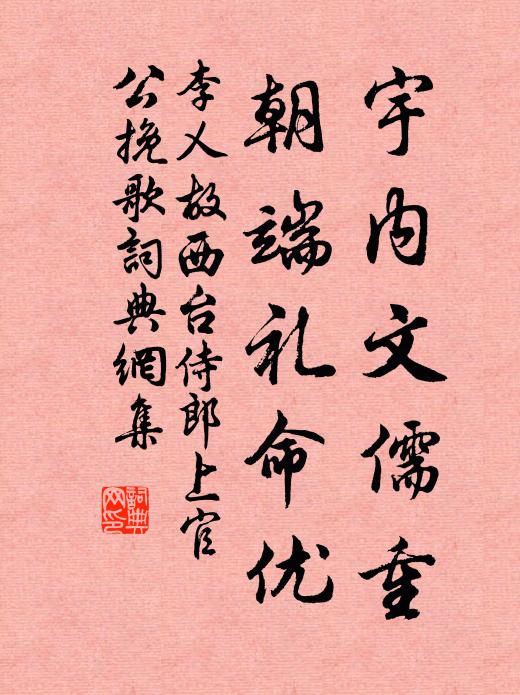 宇内文儒重
朝端礼命优
李乂故西台侍郎上官
公挽歌詞典網集
詞典网印